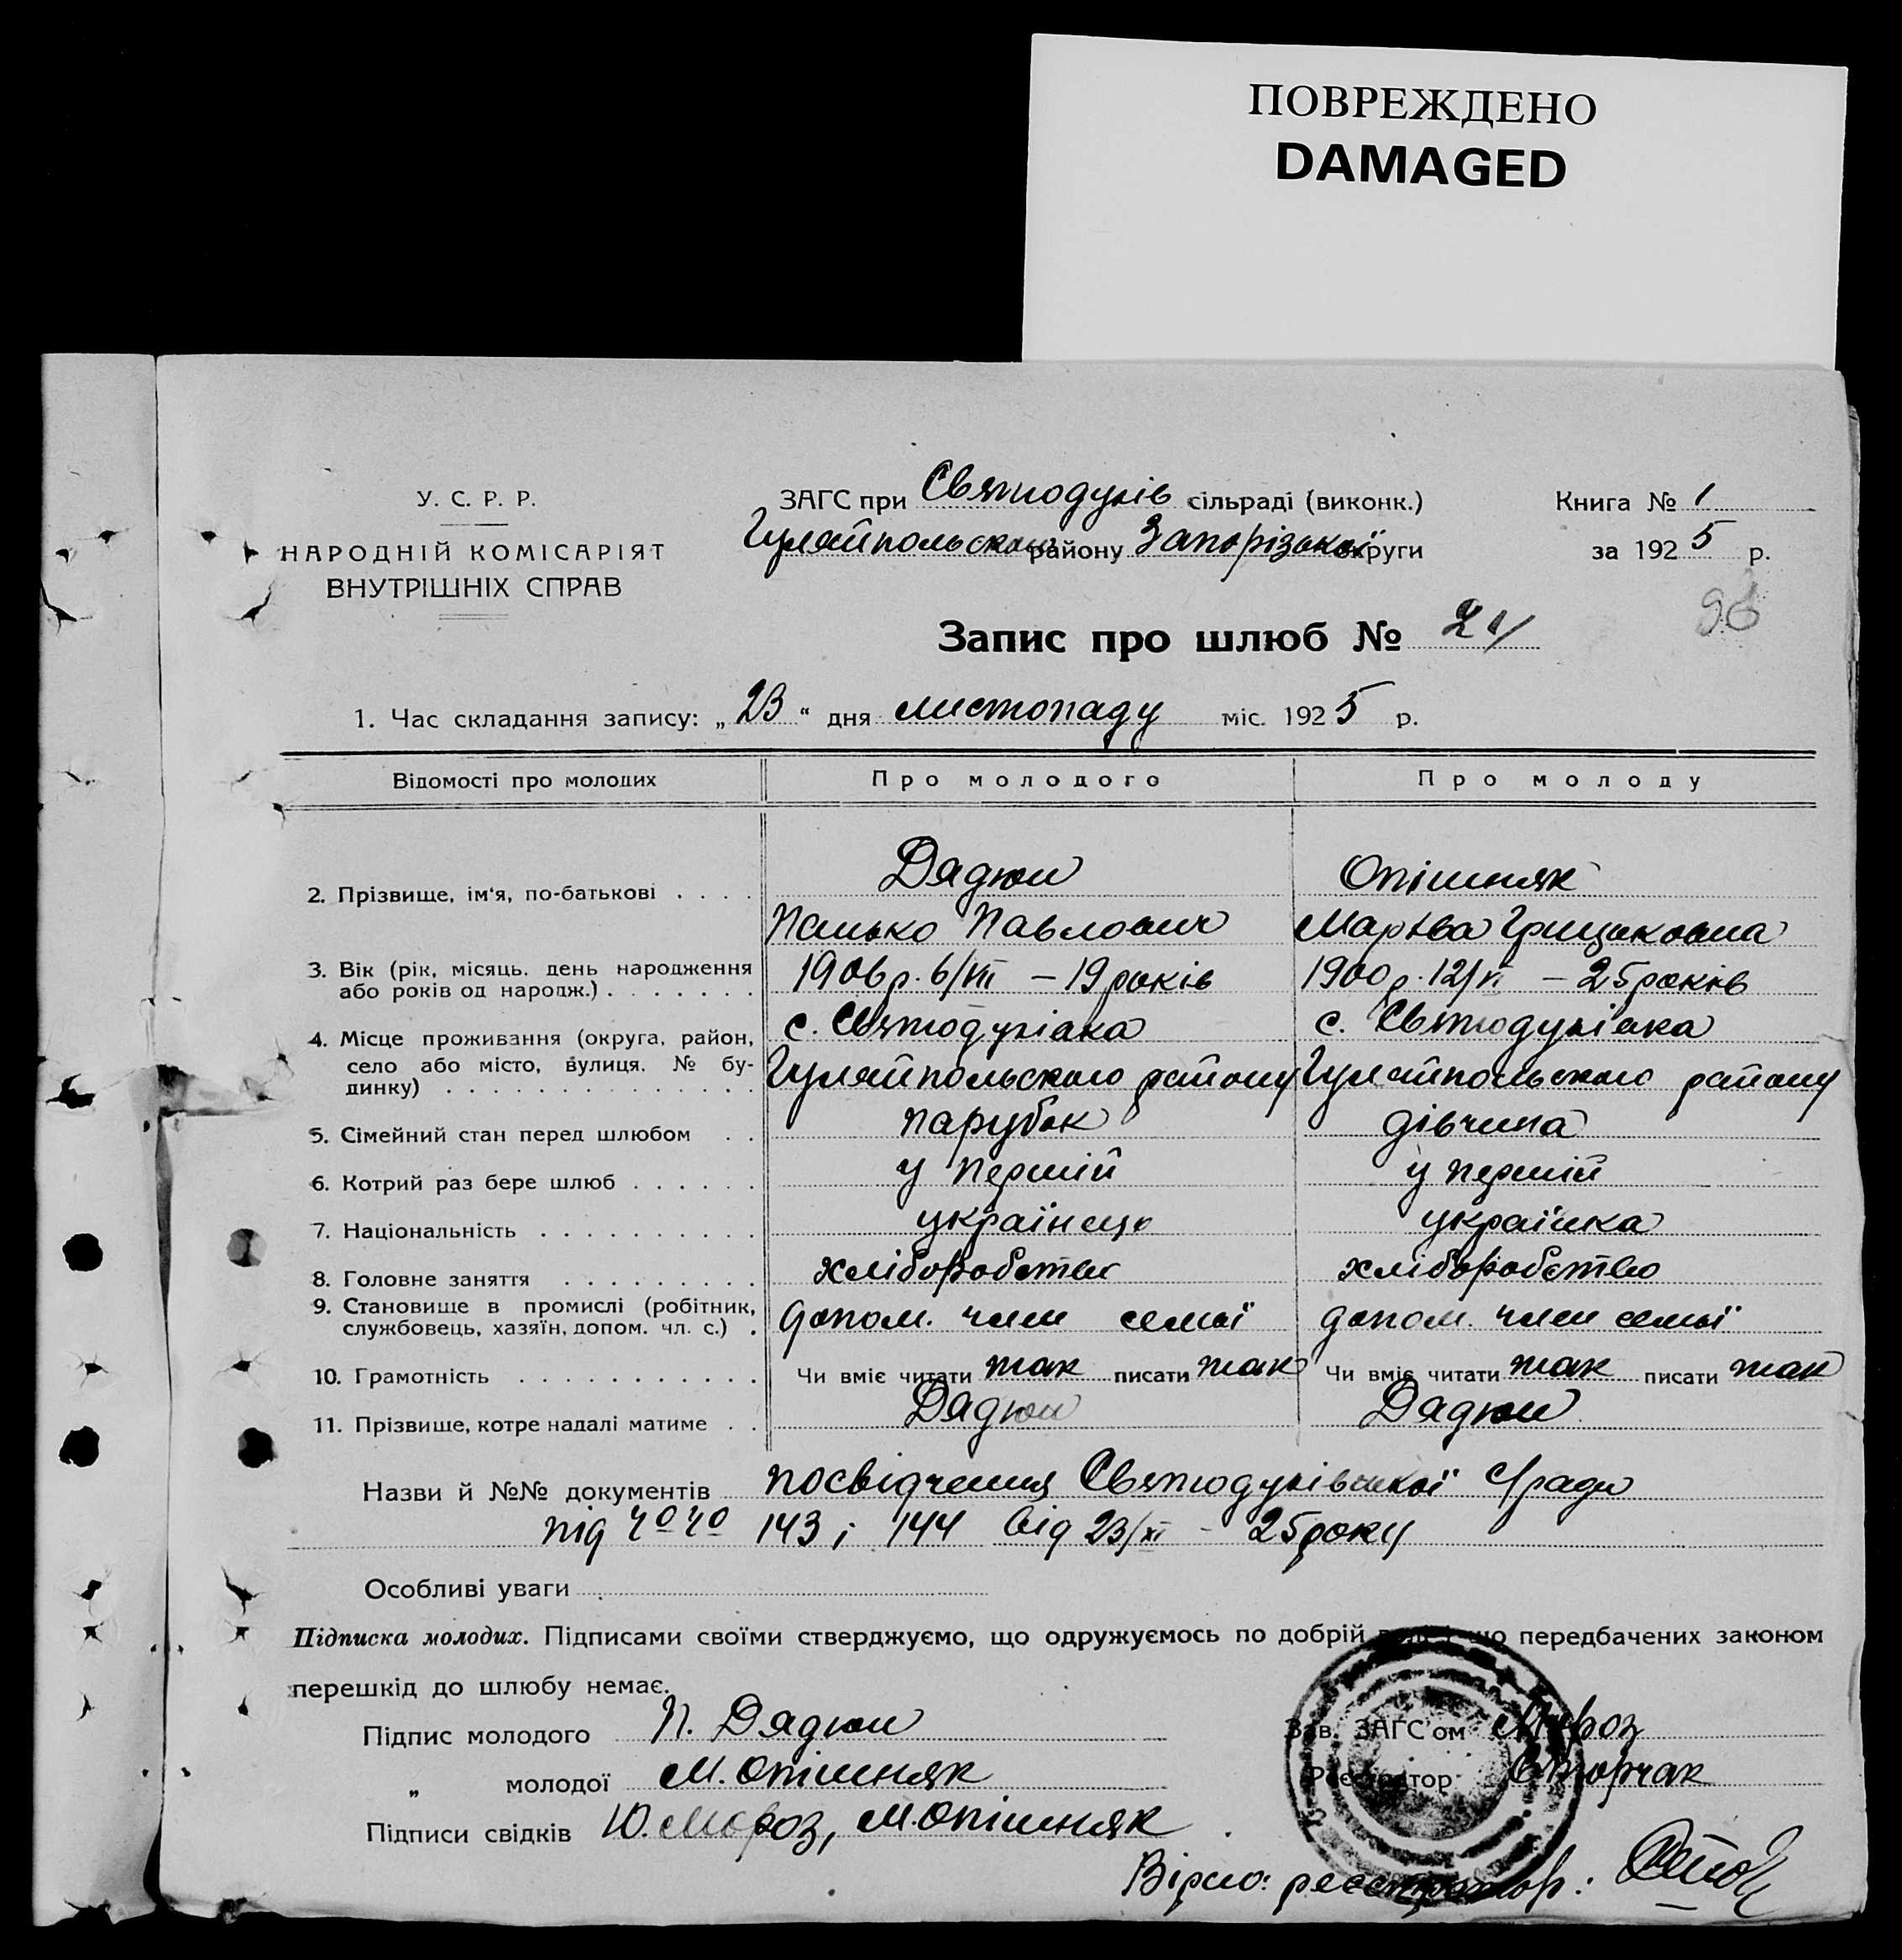 ПОВРЕЖДЕНО
DAMAGED
У. С. Р. Р.
НАРОДНІЙ КОМІСАРІЯТ
ВНУТРІШНІХ СПРАВ
ЗАГС при Святодухів сільраді (виконк.)
Гуляйпольського району Запорізької округи
Книга № 1
за 1925 р.
Запис про шлюб №
1. Час складання запису: „23“ дня листопаду міс. 1925 р.
Відомості про молодих Про молодого Про молоду
2. Прізвище, ім'я, по-батькові . . . . Дядюн Опішняк
Панько Павлович Грицьковна
3. Вік (рік, місяць. день народження
або років од народж.) . . . . . . . 1906 р. 6/VII – 19 років 1900 р. 12/VI – 25 років
4. Місце проживання (округа, район, с. Святодухівка с. Святодухівка
село або місто, вулиця. № бу-
динку) . . . . . . . . . . . . . Гуляйпольського району Гуляйпольського району
5. Сімейний стан перед шлюбом . . парубок дівчина
6. Котрий раз бере шлюб . . . . . . у перший у перший
7. Національність . . . . . . . . . . українець українка
8. Головне заняття . . . . . . . . . хліборобство хліборобство
9. Становище в промислі (робітник,
службовець, хазяїн, допом. чл. с.) . допом. член семьї допом. член семьї
10. Грамотність . . . . . . . . . . . Чи вміє читати так писати так Чи вміє читати так писати так
11. Прізвище, котре надалі матиме . . Дядюн Дядюн
Назви й №№ документів посвідчення Святодухівської с/ради
під №№ 143 і 144 від 23/XI – 25 року
Особливі уваги
Підписка молодих. Підписами своїми стверджуємо, що одружуємось по добрій волі і що передбачених законом
перешкід до шлюбу немає.
Підпис молодого П. Дядюн
„ молодої М. Опішняк
Підписи свідків Ю. Мороз, М. Опішняк
Зав. ЗАГС'ом Мороз
Реєстратор Сторчак
Вірно: реєстратор: